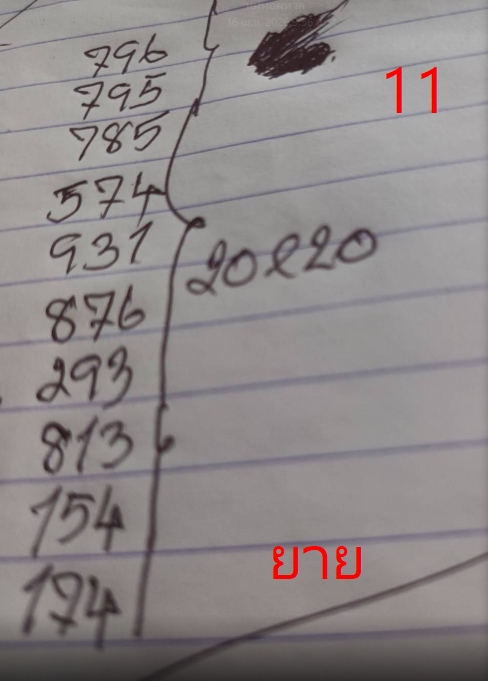 796
11
795
785
574
931
20×20
876
293
813
154
ยาย
174